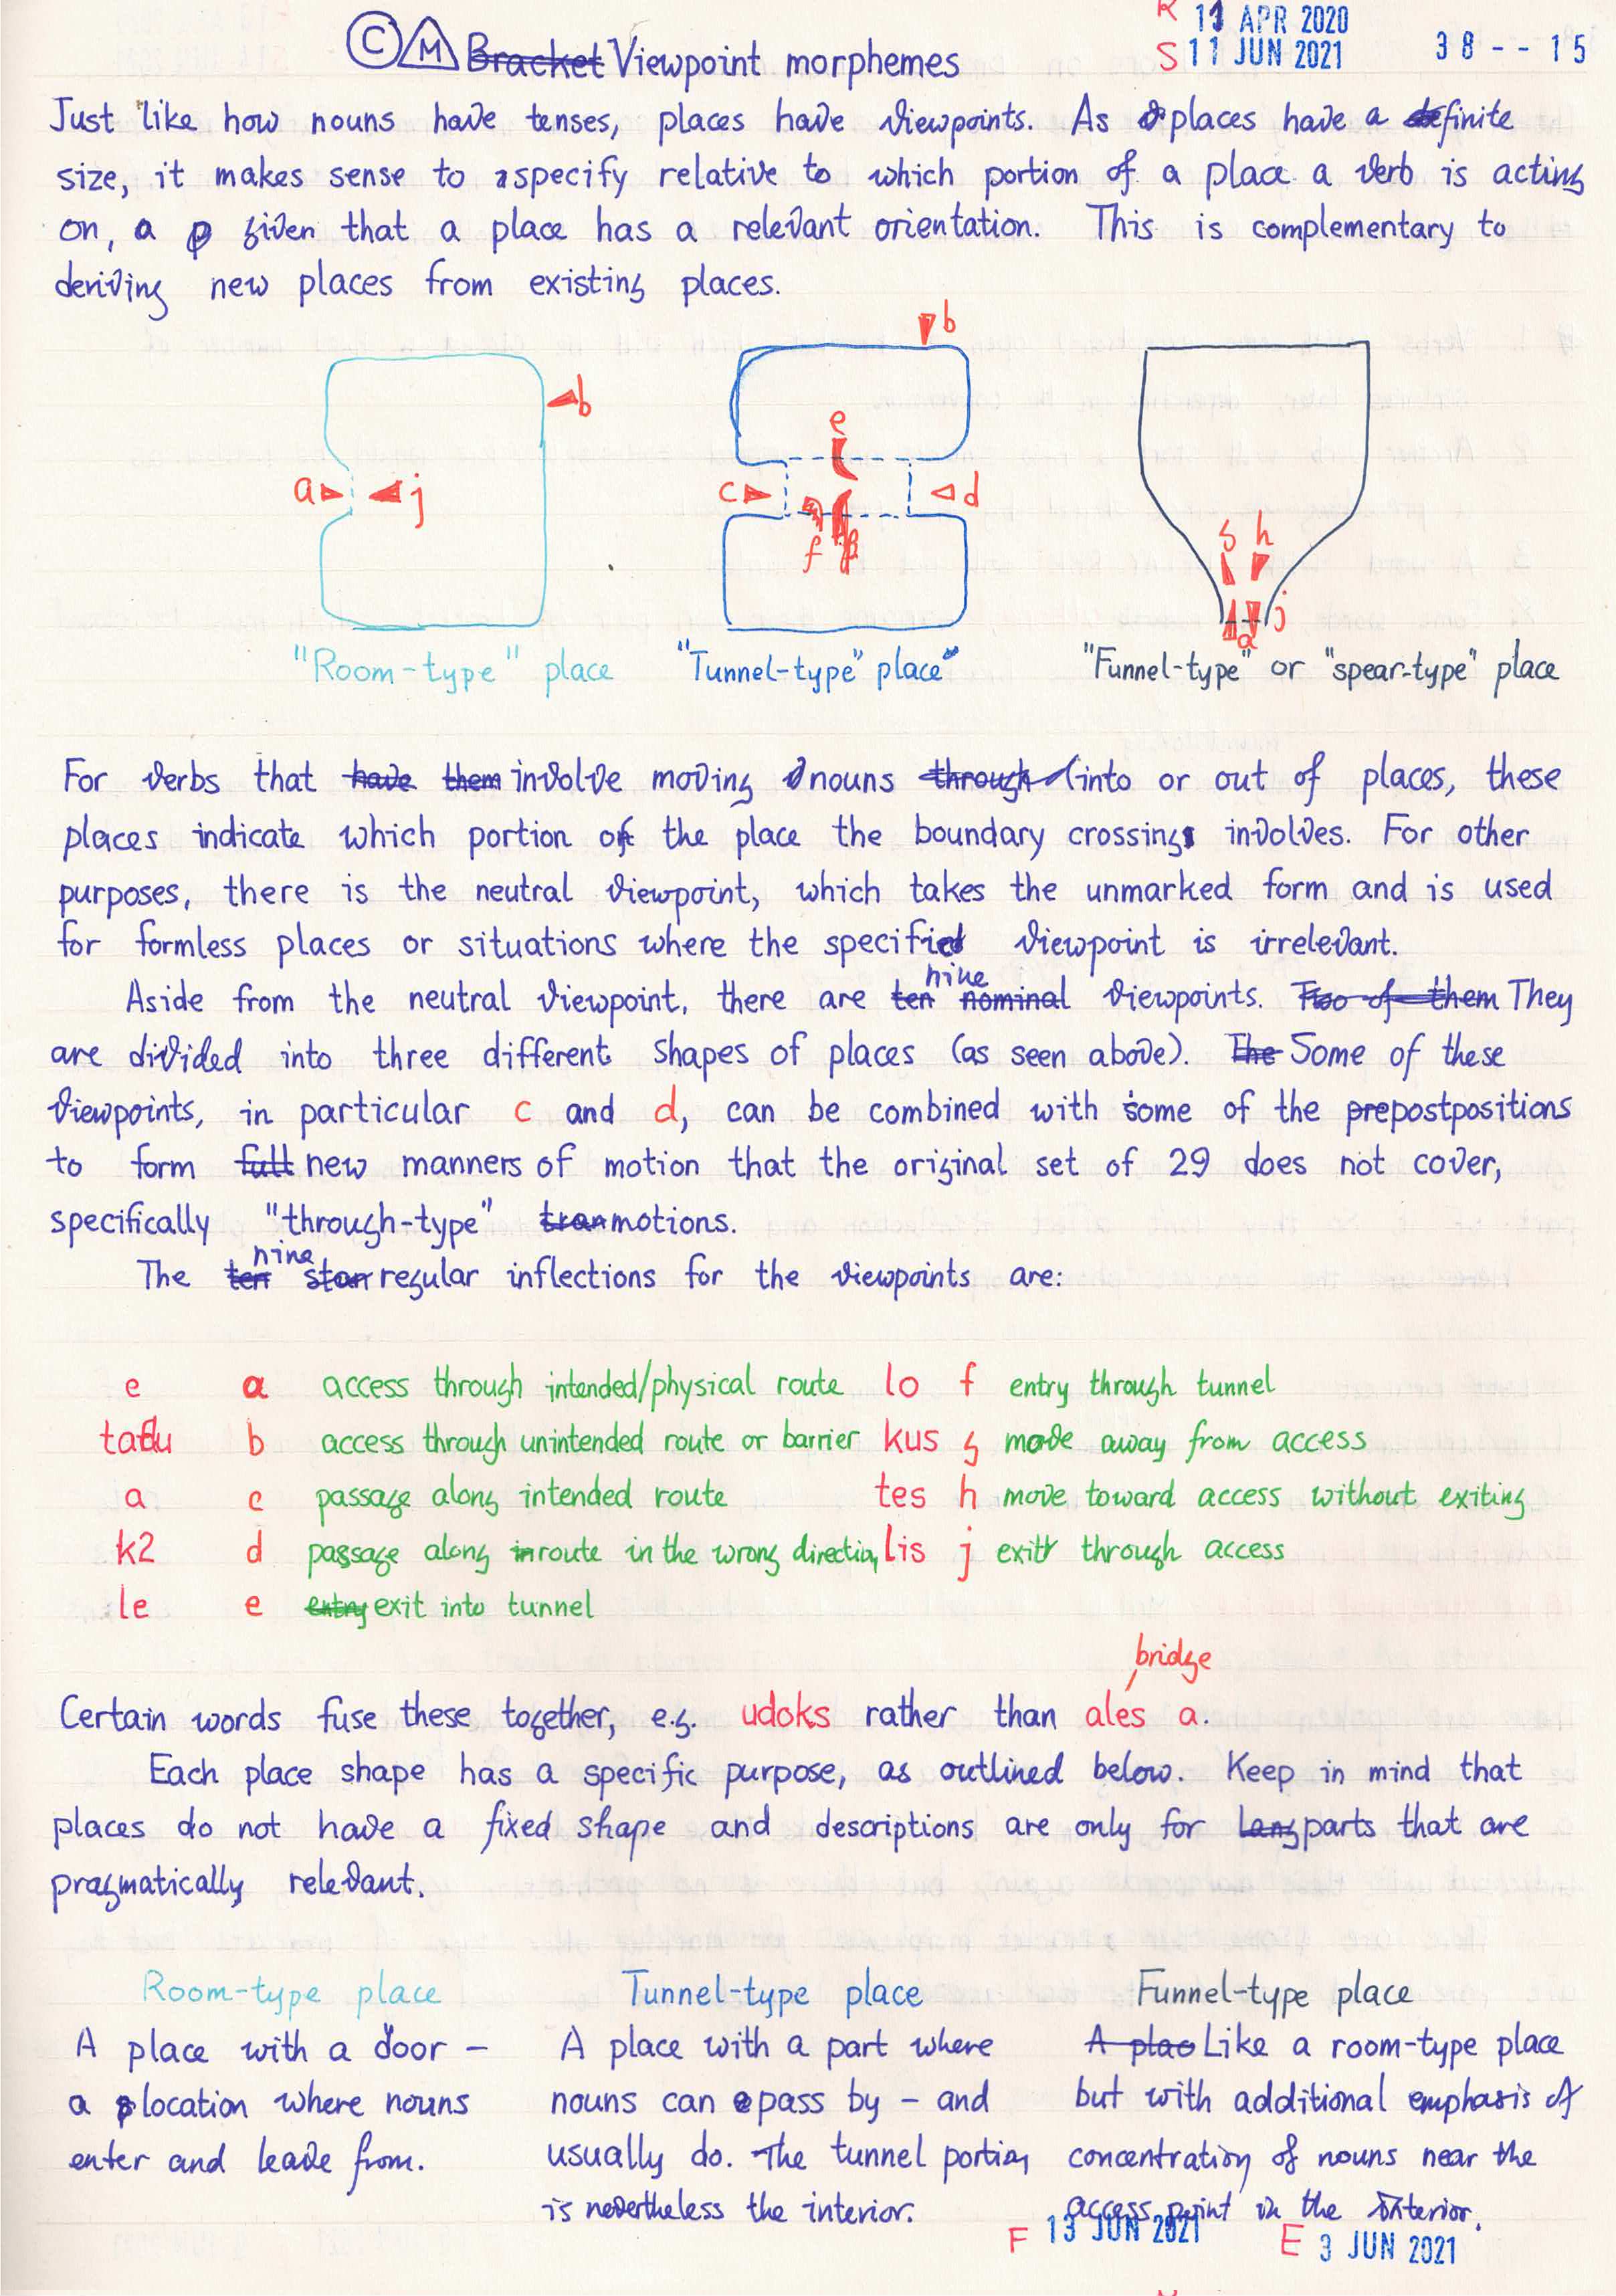 R 11 APR 2020
S 11 JUN 2021
38--15
© M Bracket Viewpoint morphemes
Just like how nouns have tenses, places have viewpoints. As places have a definite
size, it makes sense to specify relative to which portion of a place a verb is acting
on, a p given that a place has a relevant orientation. This is complementary to
deriving new places from existing places.
a j b
"Room-type" place
b e c d f
"Tunnel-type" place
g h a j
"Funnel-type" or "spear-type" place
For verbs that have them involve moving nouns through into or out of places, these
places indicate which portion of the place the boundary crossing involves. For other
purposes, there is the neutral viewpoint, which takes the unmarked form and is used
for formless places or situations where the specified viewpoint is irrelevant.
Aside from the neutral viewpoint, there are ten nine nominal viewpoints. Two of them They
are divided into three different shapes of places (as seen above). The Some of these
viewpoints, in particular c and d, can be combined with some of the prepostpositions
to form full new manners of motion that the original set of 29 does not cover,
specifically "through-type" tran motions.
The ten nine stan regular inflections for the viewpoints are:
e a access through intended/physical route lo f entry through tunnel
b access through unintended route or barrier kus g move away from access
a c passage along intended route tes h move toward access without exiting
k2 d passage along in route in the wrong direction lis j exit through access
le e entry exit into tunnel
bridge
Certain words fuse these together, e.g. udoks rather than ales a.
Each place shape has a specific purpose, as outlined below. Keep in mind that
places do not have a fixed shape and descriptions are only for lang parts that are
pragmatically relevant.
Room-type place
A place with a door –
a location where nouns
enter and leave from.
Tunnel-type place
A place with a part where
nouns can pass by – and
usually do. The tunnel portion
is nevertheless the interior.
Funnel-type place
A plac Like a room-type place
but with additional emphasis of
concentration of nouns near the
access point in the interior.
F 13 JUN 2021
E 3 JUN 2021